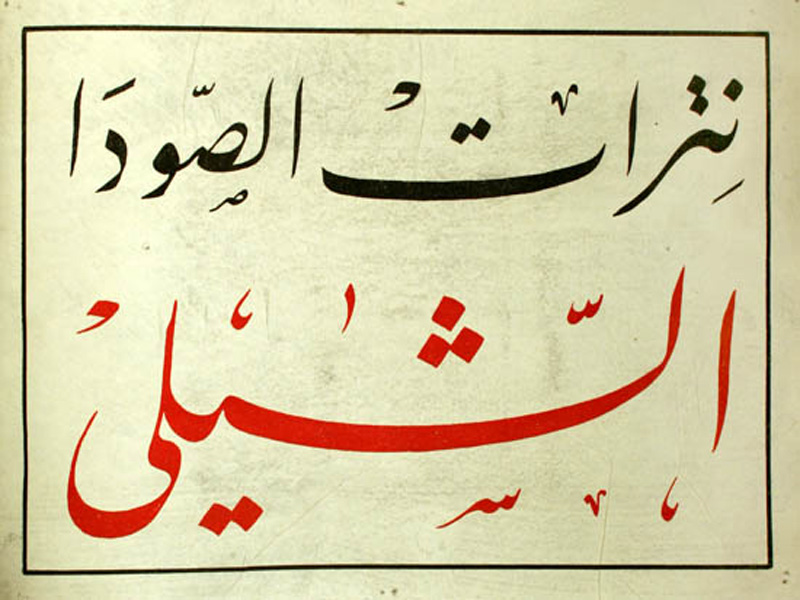 نِترات الصّودَا
الشّيلى